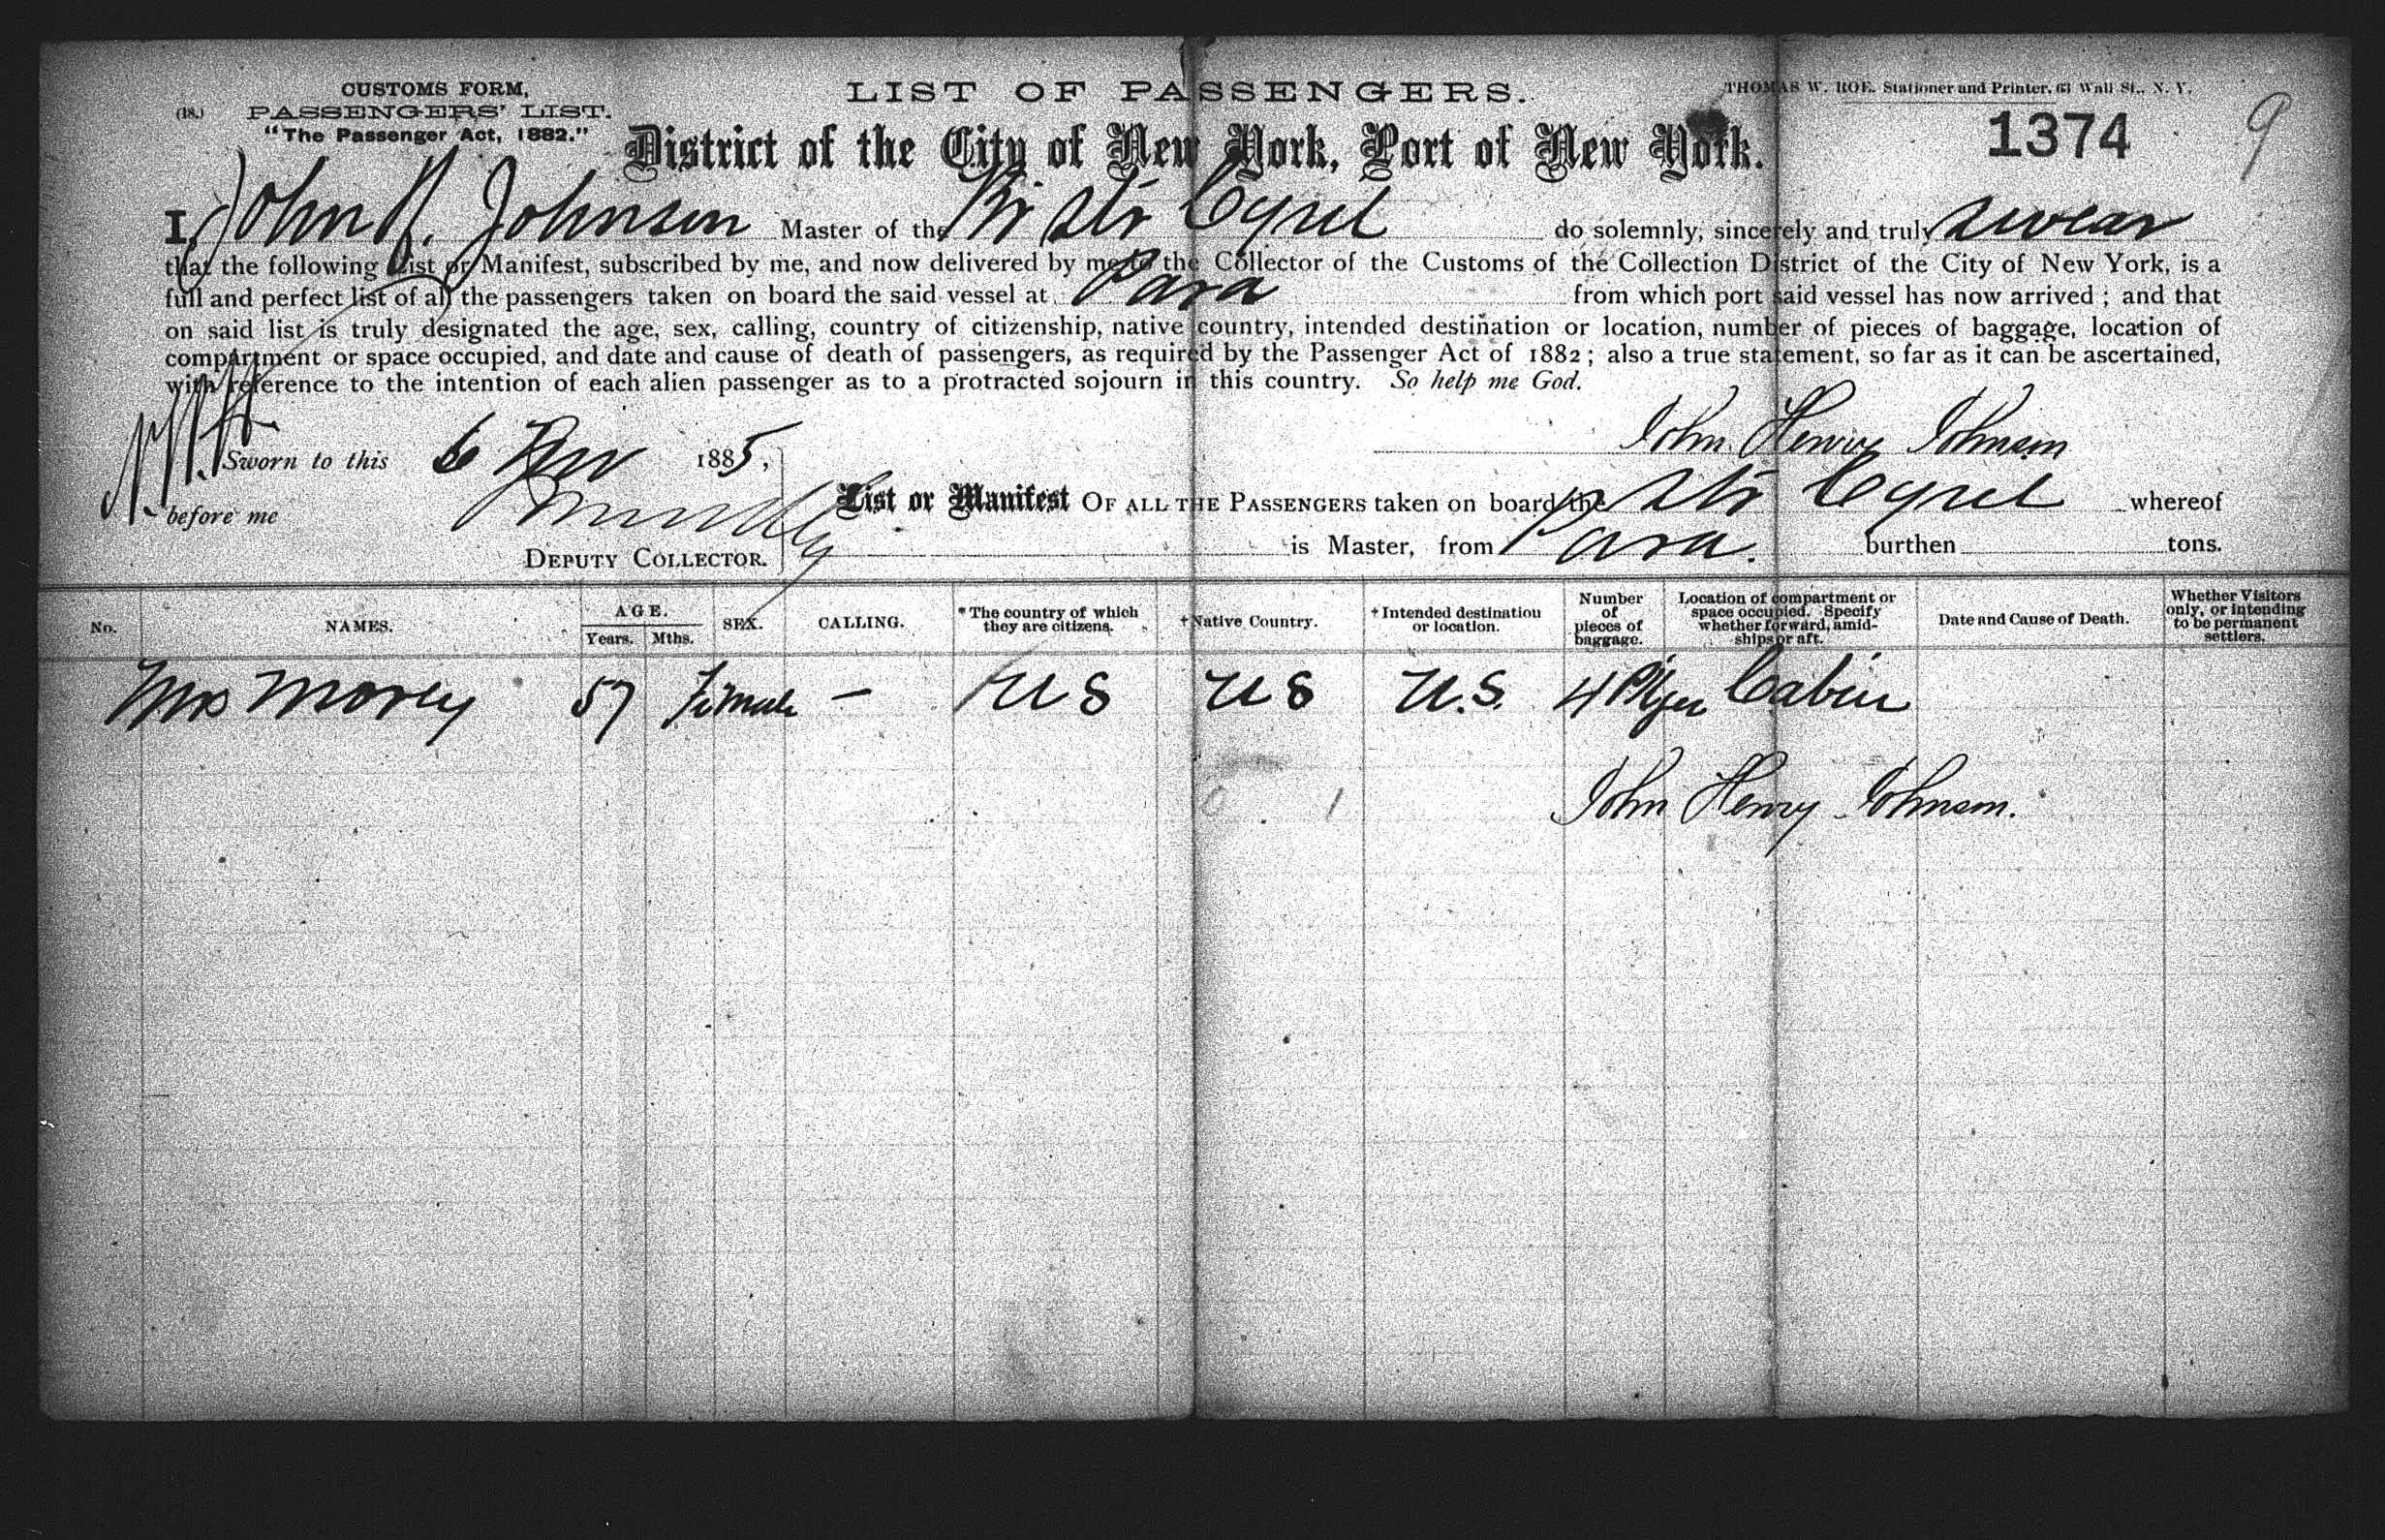 CUSTOMS FORM,
(18.) PASSENGERS' LIST.
"The Passenger Act, 1882."
LIST OF PASSENGERS.
THOMAS W. ROE. Stationer and Printer, 63 Wall St., N. Y.
District of the City of New York, Port of New York.
1374
9
I, John H. Johnson Master of the Br Str Cyril do solemnly, sincerely and truly swear
that the following List or Manifest, subscribed by me, and now delivered by me to the Collector of the Customs of the Collection District of the City of New York, is a
full and perfect list of all the passengers taken on board the said vessel at Para from which port said vessel has now arrived ; and that
on said list is truly designated the age, sex, calling, country of citizenship, native country, intended destination or location, number of pieces of baggage, location of
compartment or space occupied, and date and cause of death of passengers, as required by the Passenger Act of 1882 ; also a true statement, so far as it can be ascertained,
with reference to the intention of each alien passenger as to a protracted sojourn in this country. So help me God.
John Henry Johnson
Sworn to this 6 Nov 1885,
before me
DEPUTY COLLECTOR.
List or Manifest OF ALL THE PASSENGERS taken on board the Str Cyril whereof
is Master, from Para. burthen tons.
No. NAMES. AGE. Years. Mths. SEX. CALLING. * The country of which they are citizens. † Native Country. † Intended destination or location. Number of pieces of baggage. Location of compartment or space occupied. Specify whether forward, amidships or aft. Date and Cause of Death. Whether Visitors only, or intending to be permanent settlers.
Mrs Morey 57 Female — US US U.S. 4 Cabin
John Henry Johnson.